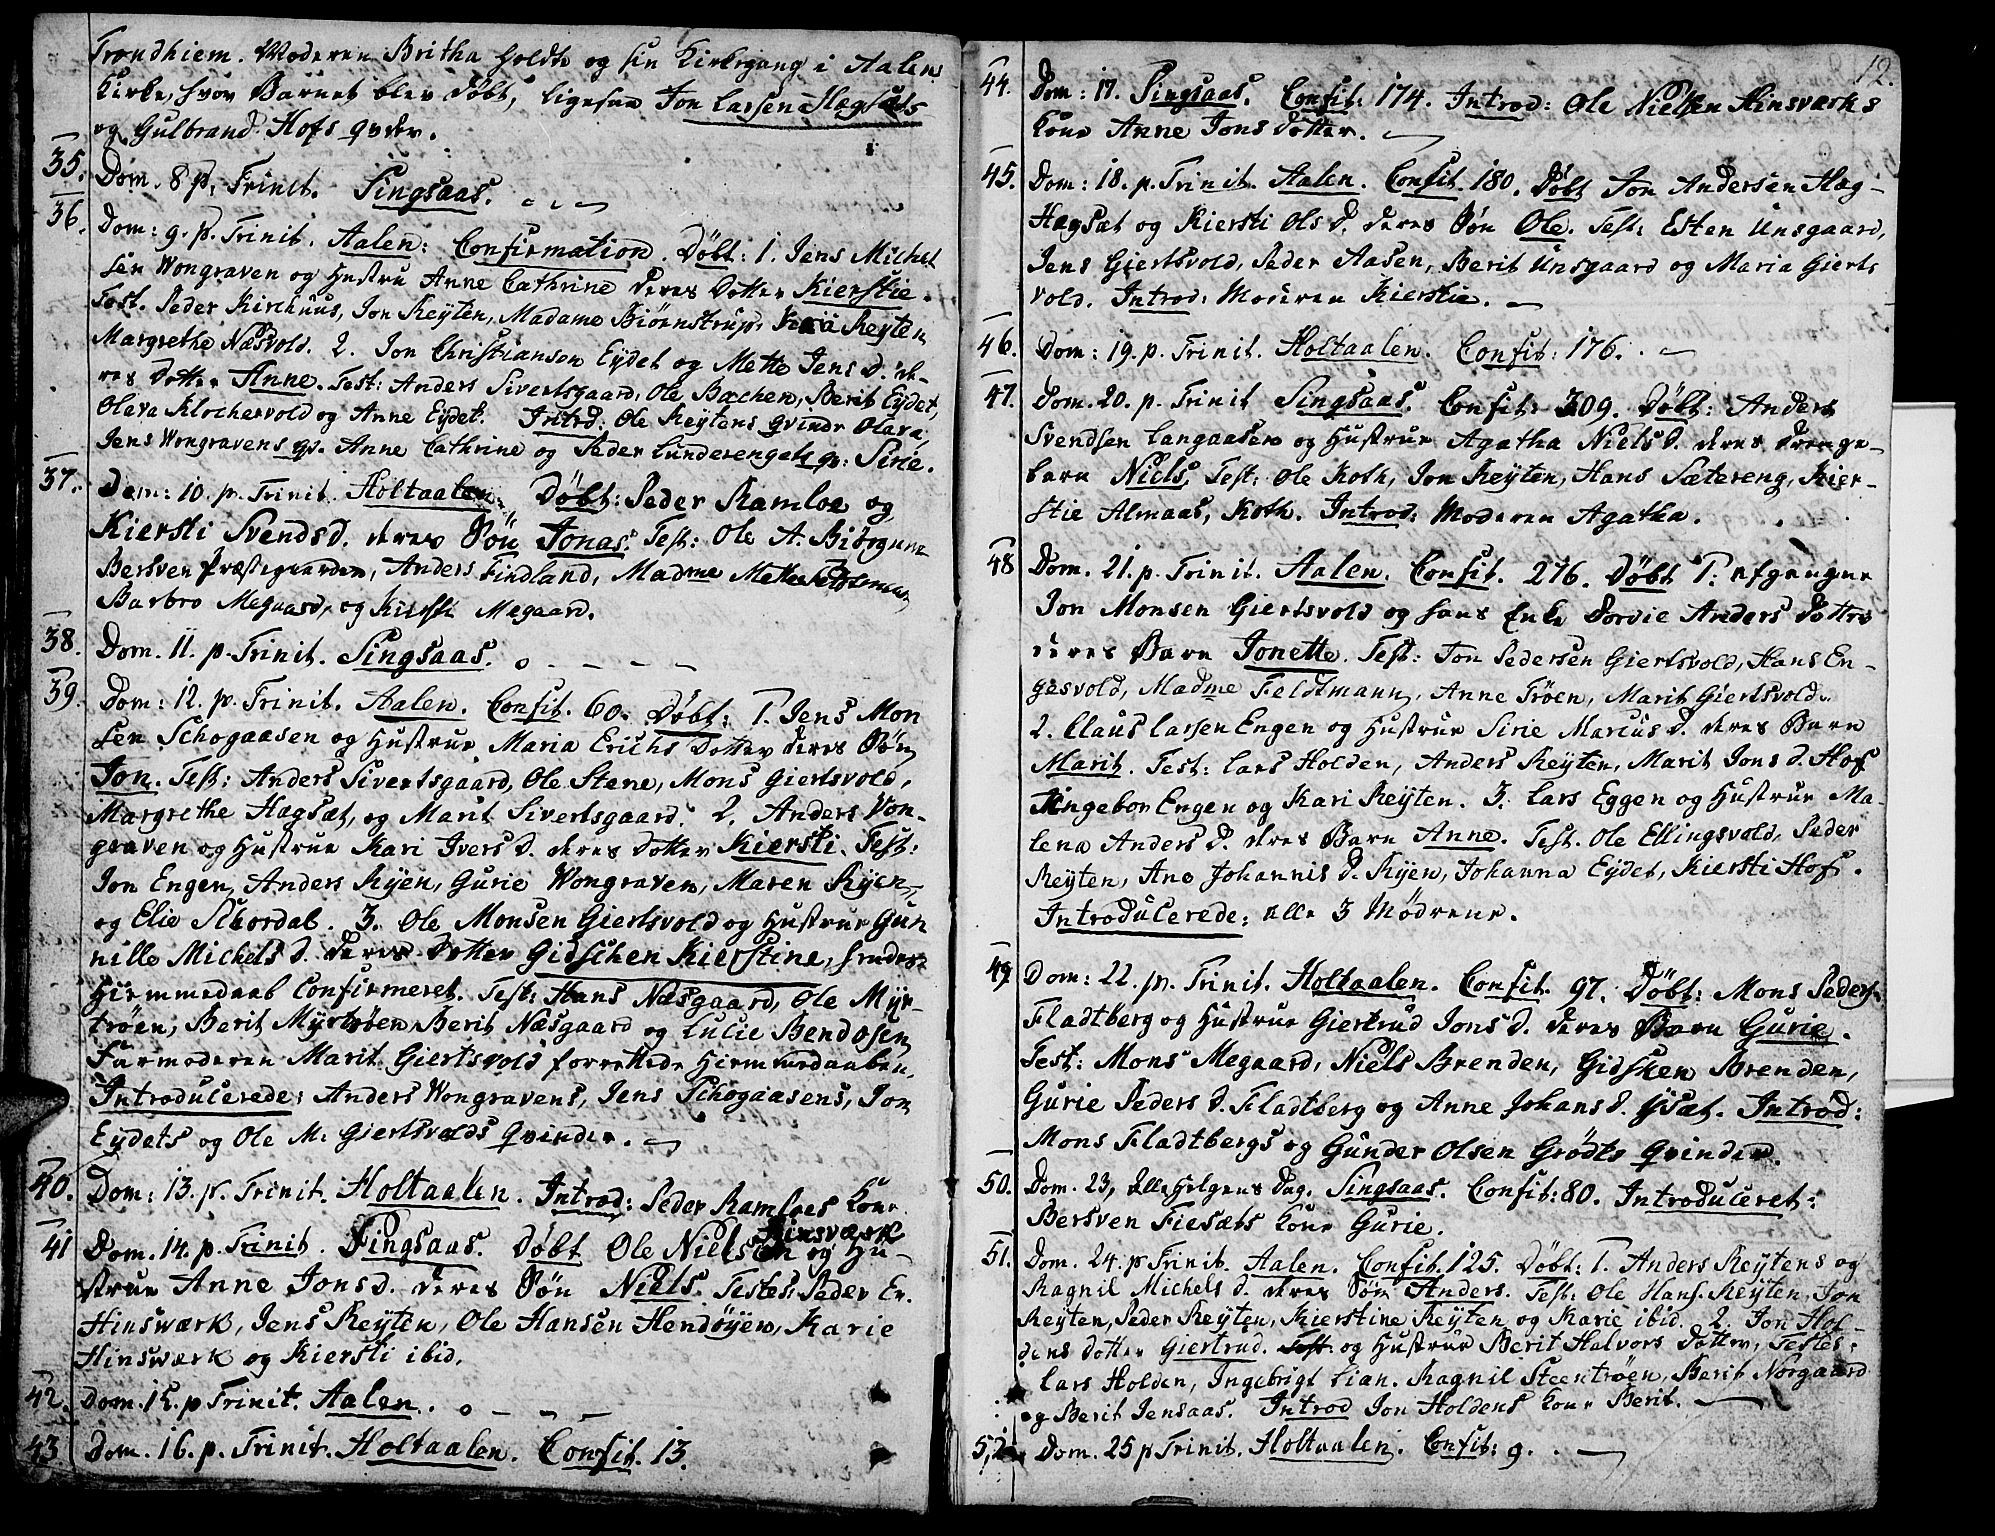 Trondhiem. Moderen Britha holdte og sin Kirkegang i Aalens
Kirke, hvor Barnet blev døbt, ligesaa Jon Larsen Hægsets
og Gulbrand Hofs qvder.
35. Dom. 8 p. Trinit. Singsaas.
36. Dom: 9. p. Trinit. Aalen: Confirmation. Døbt: 1. Jens Michel
sen Wongraven og Hustru Anne Cathrine deres Dotter Kierstie.
Test. Peder Kirchuus, Jon Reyten, Madame Biørnstrup, Reyten
Margrethe Næsvold. 2. Jon Christiansen Eydet og Mette Jens D. de-
res Dotter Anne. Test: Anders Sivertsgaard, Ole Bachen, Berit Eydet,
Olava Klochervold og Anne Eydet. Introd: Ole Reytens Qvinde Olava,
Jens Wongravens qv. Anne Cathrine og Peder Lunderengets qv: Sirie.
37. Dom: 10. p. Trinit. Holtaalen. Døbt: Peder Ramloe og
Kiersti Svends d. deres Søn Jonas. Test: Ole A. Biørgum
Bersven Præstegaarden, Anders Findland, Madme Mette
Barbro Megaard, og Kiersti Megaard.
38. Dom. 11. p. Trinit. Singsaas.
39. Dom: 12. p. Trinit. Aalen. Confit. 60. Døbt: 1. Jens Mon
sen Schogaasen og Hustrue Maria Erichs Dotter deres Søn
Jon. Test: Anders Sivertsgaard, Ole Stene, Mons Giertsvold,
Margrethe Hægsæt, og Marit Sivertsgaard. 2. Anders Von-
graven og Hustrue Kari Ivers D. deres Dotter Kiersti. Test:
Jon Engen, Anders Ryen, Gurie Wongraven, Maren Ryen,
og Elie Schordal. 3. Ole Monsen Giertsvold og Hustrue Gun
nille Michels D. deres Dotter Gidschen Kierstine, hendes
Hiemmedaab Confirmeret. Test: Hans Næsgaard, Ole Myr-
trøen, Berit Myrtrøen, Berit Næsgaard og Lucie Bendosen
Farmoderen Marit Giertsvold forrettede Hiemmedaaben.
Introducerede: Anders Wongravens, Jens Schogaasens, Jon
Eydets og Ole M. Giertsvolds Qvinder.
40. Dom: 13. p. Trinit. Holtaalen. Introd: Peder Ramloes Kone.
41 Dom. 14. p. Trinit. Singsaas. Døbt Ole Nielsen Hinsværk og Hu-
strue Anne Jonsd. deres Søn Niels. Testes: Peder Er.
Hinswærk, Jens Reyten, Ole Hansen Hendøyen, Karie
Hinswærk og Kiersti ibid.
42. Dom. 15. p Trinit. Aalen.
43. Dom. 16. p. Trinit. Holtaalen. Confit. 13.
12.
44. Dom: 17. Singsaas. Confit: 174. Introd: Ole Nielsen Hinsværks
Kone Anne Jons Dotter.
45. Dom: 18. p. Trinit. Aalen. Confit. 180. Døbt Jon Andersen Hæg-
Hægsæt og Kiersti Ols D. deres Søn Ole. Test: Esten Unsgaard,
Jens Giertsvold, Peder Aasen, Berit Unsgaard og Maria Gierts
vold. Introd: Moderen Kierstie.
46. Dom: 19. p. Trinit. Holtaalen. Confit: 176.
47. Dom. 20. p. Trinit Singsaas. Confit: 309. Døbt: Anders
Svendsen Langaasen og Hustrue Agatha Niels D. deres Drenge-
barn Niels. Test: Ole Koth, Jon Reyten, Hans Sætereng, Kier-
stie Almaas, Koth. Introd: Moderen Agatha.
48 Dom. 21. p. Trinit. Aalen. Confit. 276. Døbt 1: afgangne
Jon Monsen Giertsvold og hans Enke Dorvie Anders Dotter
deres Barn Jonette. Test: Jon Pedersen Giertsvold, Hans En-
gesvold, Madme Feldtmann, Anne Trøen, Marit Giertsvold.
2. Claus Larsen Engen og Hustrue Sirie Marcus D. deres Barn
Marit. Test: Lars Holden, Anders Reyten, Marit Jons d. Hof
Ingebor Engen og Kari Reyten. 3. Lars Eggen og Hustrue Ma-
lena Anders D. deres Barn Anne. Test. Ole Ellingsvold, Peder
Reyten, Ane Johannis D. Ryen, Johanna Eydet, Kiersti Hof.
Introducerede: alle 3 Mødrene.
49 Dom: 22. p. Trinit. Holtaalen. Confit. 97. Døbt: Mons Peders.
Fladtberg og Hustrue Giertrud Jons D. deres Barn Gurie.
Test: Mons Megaard, Niels Brenden, Gidsken Brenden,
Gurie Peders D. Fladtberg og Anne Johans D. Ysæt. Introd:
Mons Fladtbergs og Gunder Olsen Grødts Qvinder.
50. Dom. 23, Alle Helgens Dag. Singsaas. Confit: 80. Introduceret:
Bersven Fiesæts Kone Gurie.
51. Dom. 24. p Trinit. Aalen. Confit. 125. Døbt: 1. Anders Reytens og
Ragnil Michels D. deres Søn Anders. Test: Ole Hans. Reyten, Jon
Reyten, Peder Reyten, Kierstine Reyten og Karie ibid. 2. Jon Hol-
dens Dotter Giertrud. Test og Hustrue Berit Halvors Dotter, Testes:
Lars Holden, Ingebrigt Lian. Ragnil Steentrøen, Berit Norgaard
og Berit Jensaas. Introd Jon Holdens Kone Berit.
52 Dom. 25 p Trinit. Holtaalen. Confit: 9.